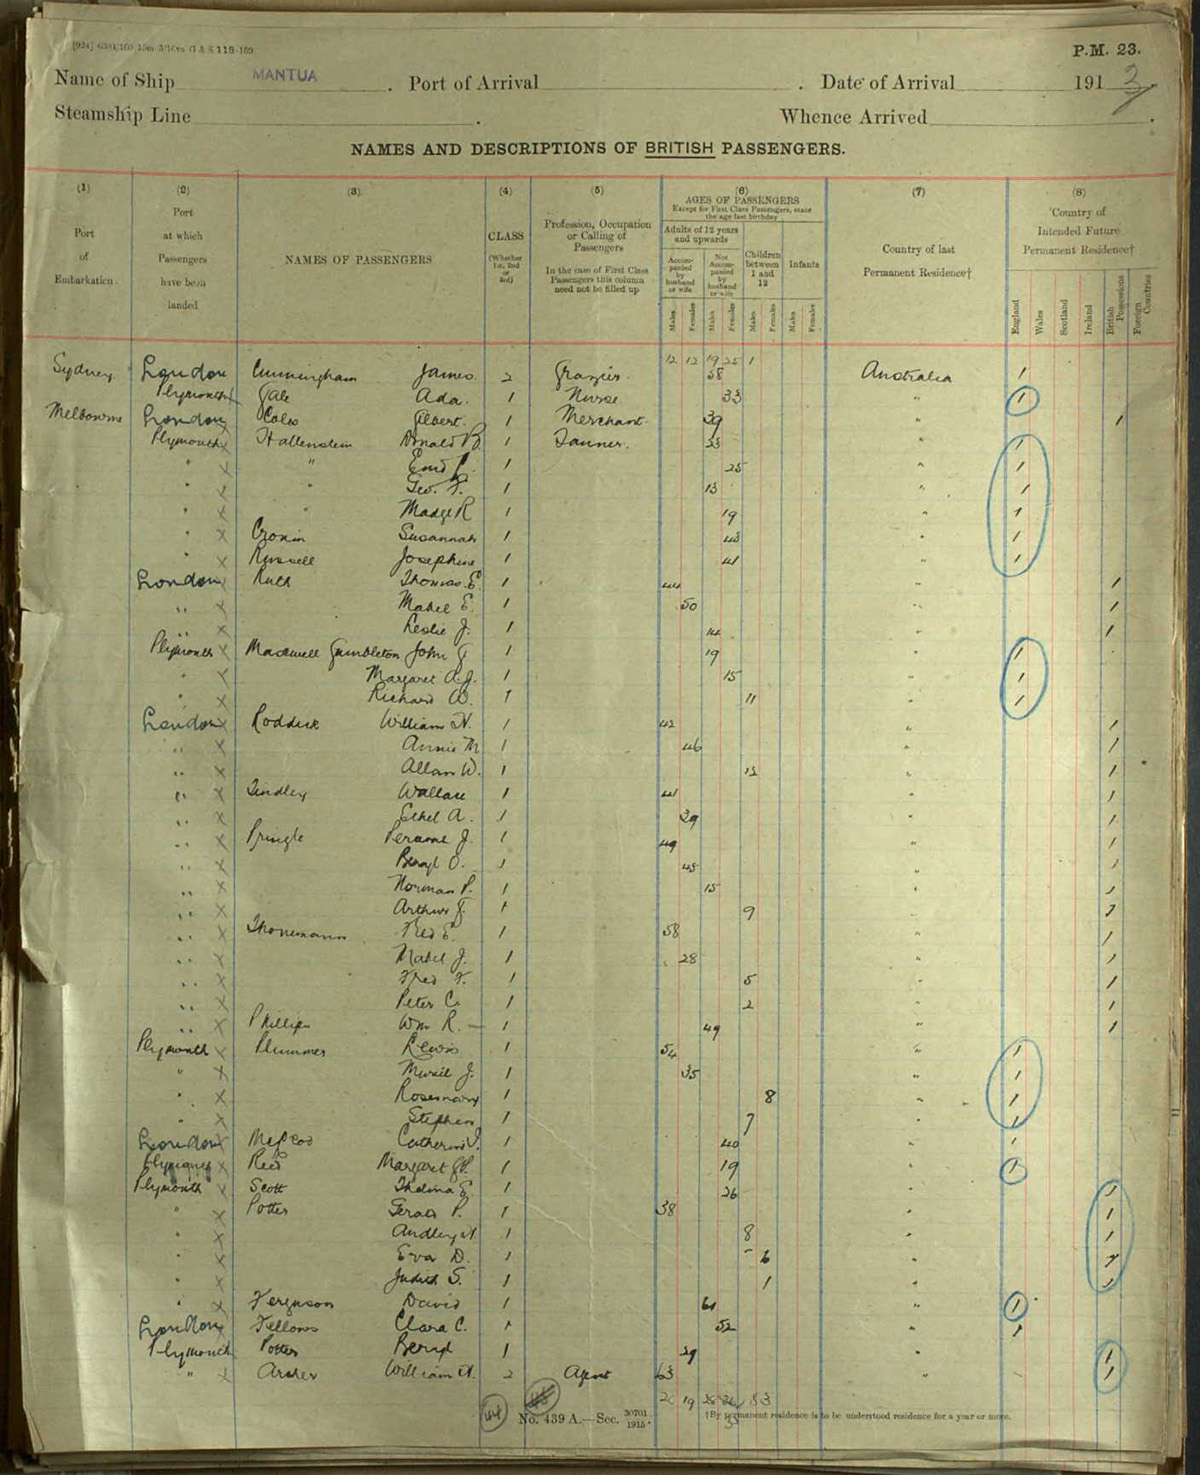 [924] 6381/160 15m 5/16m G A S 118-109
P.M. 23.
Name of Ship MANTUA . Port of Arrival . Date of Arrival 191
Steamship Line . Whence Arrived .
NAMES AND DESCRIPTIONS OF BRITISH PASSENGERS.
(1) (2) (3) (4) (5) (6) (7) (8)
Port of Embarkation
Port at which Passengers have been landed
NAMES OF PASSENGERS
CLASS (Whether 1st, 2nd or 3rd)
Profession, Occupation or Calling of Passengers
In the case of First Class Passengers this column need not be filled up
AGES OF PASSENGERS
Except for First Class Passengers, state the age last birthday
Adults of 12 years and upwards
Accompanied by husband or wife
Not Accompanied by husband or wife
Children between 1 and 12
Infants
Males Females Males Females Males Females Males Females
Country of last Permanent Residence†
Country of Intended Future Permanent Residence†
England Wales Scotland Ireland British Possessions Foreign Countries
12 12 19 25 1
Sydney London Cunningham James 2 Grazier 58 Australia /
Plymouth Gale Ada 1 Nurse 33 " /
Melbourne London Coles Albert 1 Merchant 39 " /
Plymouth Hallenstein Donald B. 1 Tanner. 23 " /
" " 1 25 " /
" " Geo. F. 1 13 " /
" Madge R 1 19 " /
" Cronin Susannah 1 43 " /
" Russell Josephine 1 41 " /
London Thomas E. 1 44 " /
" Mabel E. 1 50 " /
" Leslie J. 1 14 " /
Plymouth Maxwell Gumbleton John G 1 19 " /
" Margaret A.J. 1 15 " /
" Richard W. 1 11 " /
London Roddick William H. 1 42 " /
" Annie M 1 46 " /
" Allan W. 1 12 " /
" Tindley Wallace 1 41 " /
" Ethel A. 1 39 " /
" Pringle J. 1 49 " /
" Beryl O. 1 45 " /
" Norman P. 1 15 " /
" Arthur J. 1 9 " /
" Thonemann Fred E. 1 58 " /
" Mabel J. 1 28 " /
" Fred F. 1 5 " /
" Peter C. 1 2 " /
" Phillips Wm R. — 1 49 " /
Plymouth Plummer Lewis 1 54 " /
" Muriel J. 1 35 " /
" Rosemary 1 8 " /
" Stephen 1 7 /
London McLeod Catherine J. 1 40 " /
Plymouth Reid Margaret 1 19 " /
Plymouth Scott Thelma E. 1 26 " /
" Potter Gerald P. 1 38 " /
" Audley 1 8 " /
" Eva D. 1 6 " /
" Judith S. 1 1 " /
" Ferguson David 1 61 " /
London Fellows Clara C. 1 52 " /
Plymouth Potter Beryl 1 29 " /
" Archer William H. 2 Agent 63 " /
44
No. 439 A.—Sec. 30701/1915.
†By permanent residence is to be understood residence for a year or more.